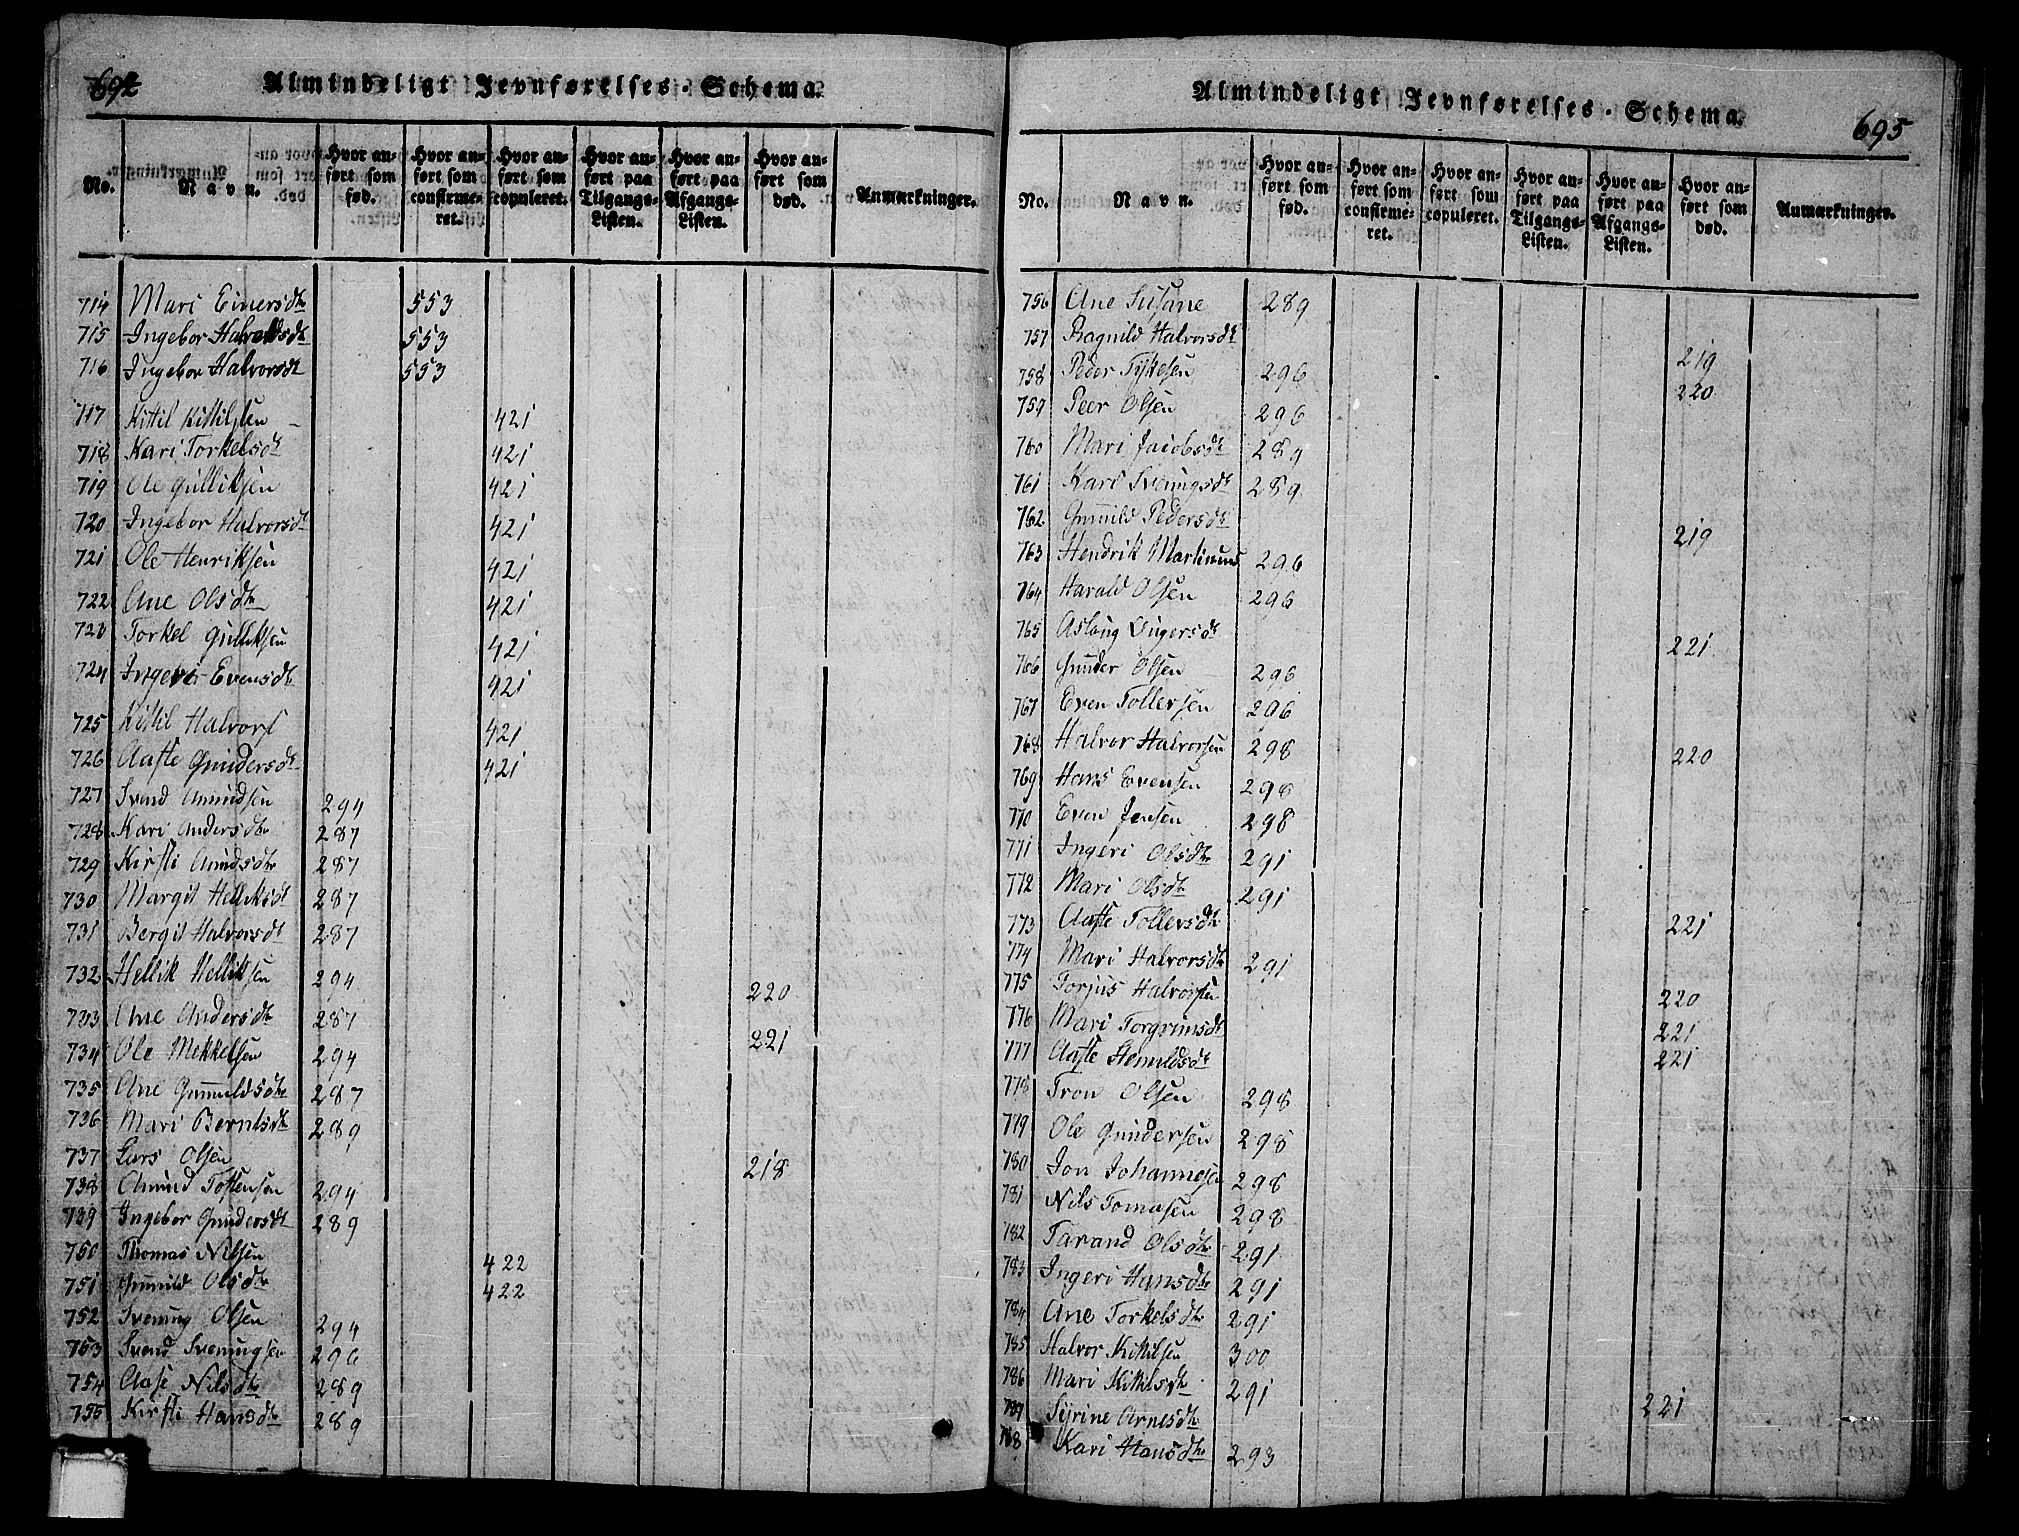 692
Almindeligt Jevnførelses-Schema.
No.
Navn.
Hvor anført som fød.
Hvor anført som confirmeret.
Hvor anført som copuleret.
Hvor anført paa Tilgangs-Listen.
Hvor anført paa Afgangs-Listen.
Hvor anført som død.
Anmærkninger.
714 Mari Einersdtr 553
715 Ingebor Halvoldsdtr 553
716 Ingebor Halvorsdt 553
717 Kittil Kittilsen 421
718 Kari Torkelsdt 421
719 Ole Gulliksen 421
720 Ingebor Halvorsdt 421
721 Ole Henriksen 421
722 Ane Olsdtr 421
723 Torkel Gulliksen 421
724 Evensdt 421
725 Kittil Halvors 421
726 Aaste Gundersdt 421
727 Svend Amundsen 294
728 Kari Andersdtr 287
729 Kirsti Amundsdtr 287
730 Margit Helliksdt 287
731 Bergit Halvorsdt 287
732 Hellik Helliksen 294
220
733 Ane Andersdt 287
221
734 Ole Mekkelsen 294
735 Ane Gunnuldsdtr 287
736 Mari Berntsdtr 289
737 Lars Olsen 218
738 Amund Tostensen 294
739 Ingebor Gundersdt 289
750 Thomas Nilsen 422
751 Gunnild Olsdtr 422
752 Svenung Olsen 294
753 Svend Svenungsen 296
754 Aase Nilsdtr 289
755 Kirsti Hansdtr 289
695
Almindeligt Jevnførelses-Schema.
No.
Navn.
Hvor anført som fød.
Hvor anført som confirmeret.
Hvor anført som copuleret.
Hvor anført paa Tilgangs-Listen.
Hvor anført paa Afgangs-Listen.
Hvor anført som død.
Anmærkninger.
756 Ane Susane 289
757 Ragnild Halvorsdt 219
758 Peder Tykesen 296 220
759 Peer Olsen 296
760 Mari Jacobsdt 289
761 Kari Svenungsdt 289
762 Gunnild Pedersdt 219
763 Hendrik Martinus 296
764 Harald Olsen 296
765 Aslaug 221
766 Gunder Olsen 296
767 Even Tollersen 296
768 Halvor Halvorsen 298 220
769 Hans Evensen 298
770 Even Jensen 298
771 Ingeri Olsdtr 291
772 Mari Olsdtr 291
773 Aaste Tollersdtr 221
774 Mari Halvorsdtr 291
775 Torjus Halvorsen 220
776 Mari Torgrimsdt 221
777 Aaste 221
778 Tron Olsen 298
779 Ole Gundersen 298
780 Jon Johannesen 298
781 Nils Tomasen 298
782 Tarand Olsdtr 291
783 Ingeri Hansdtr 291
784 Ane Torkelsdtr 291
785 Halvor Kittilsen 300
786 Mari Kittilsdtr 291
787 Syrine Arnesdtr 221
788 Kari Hansdtr 293